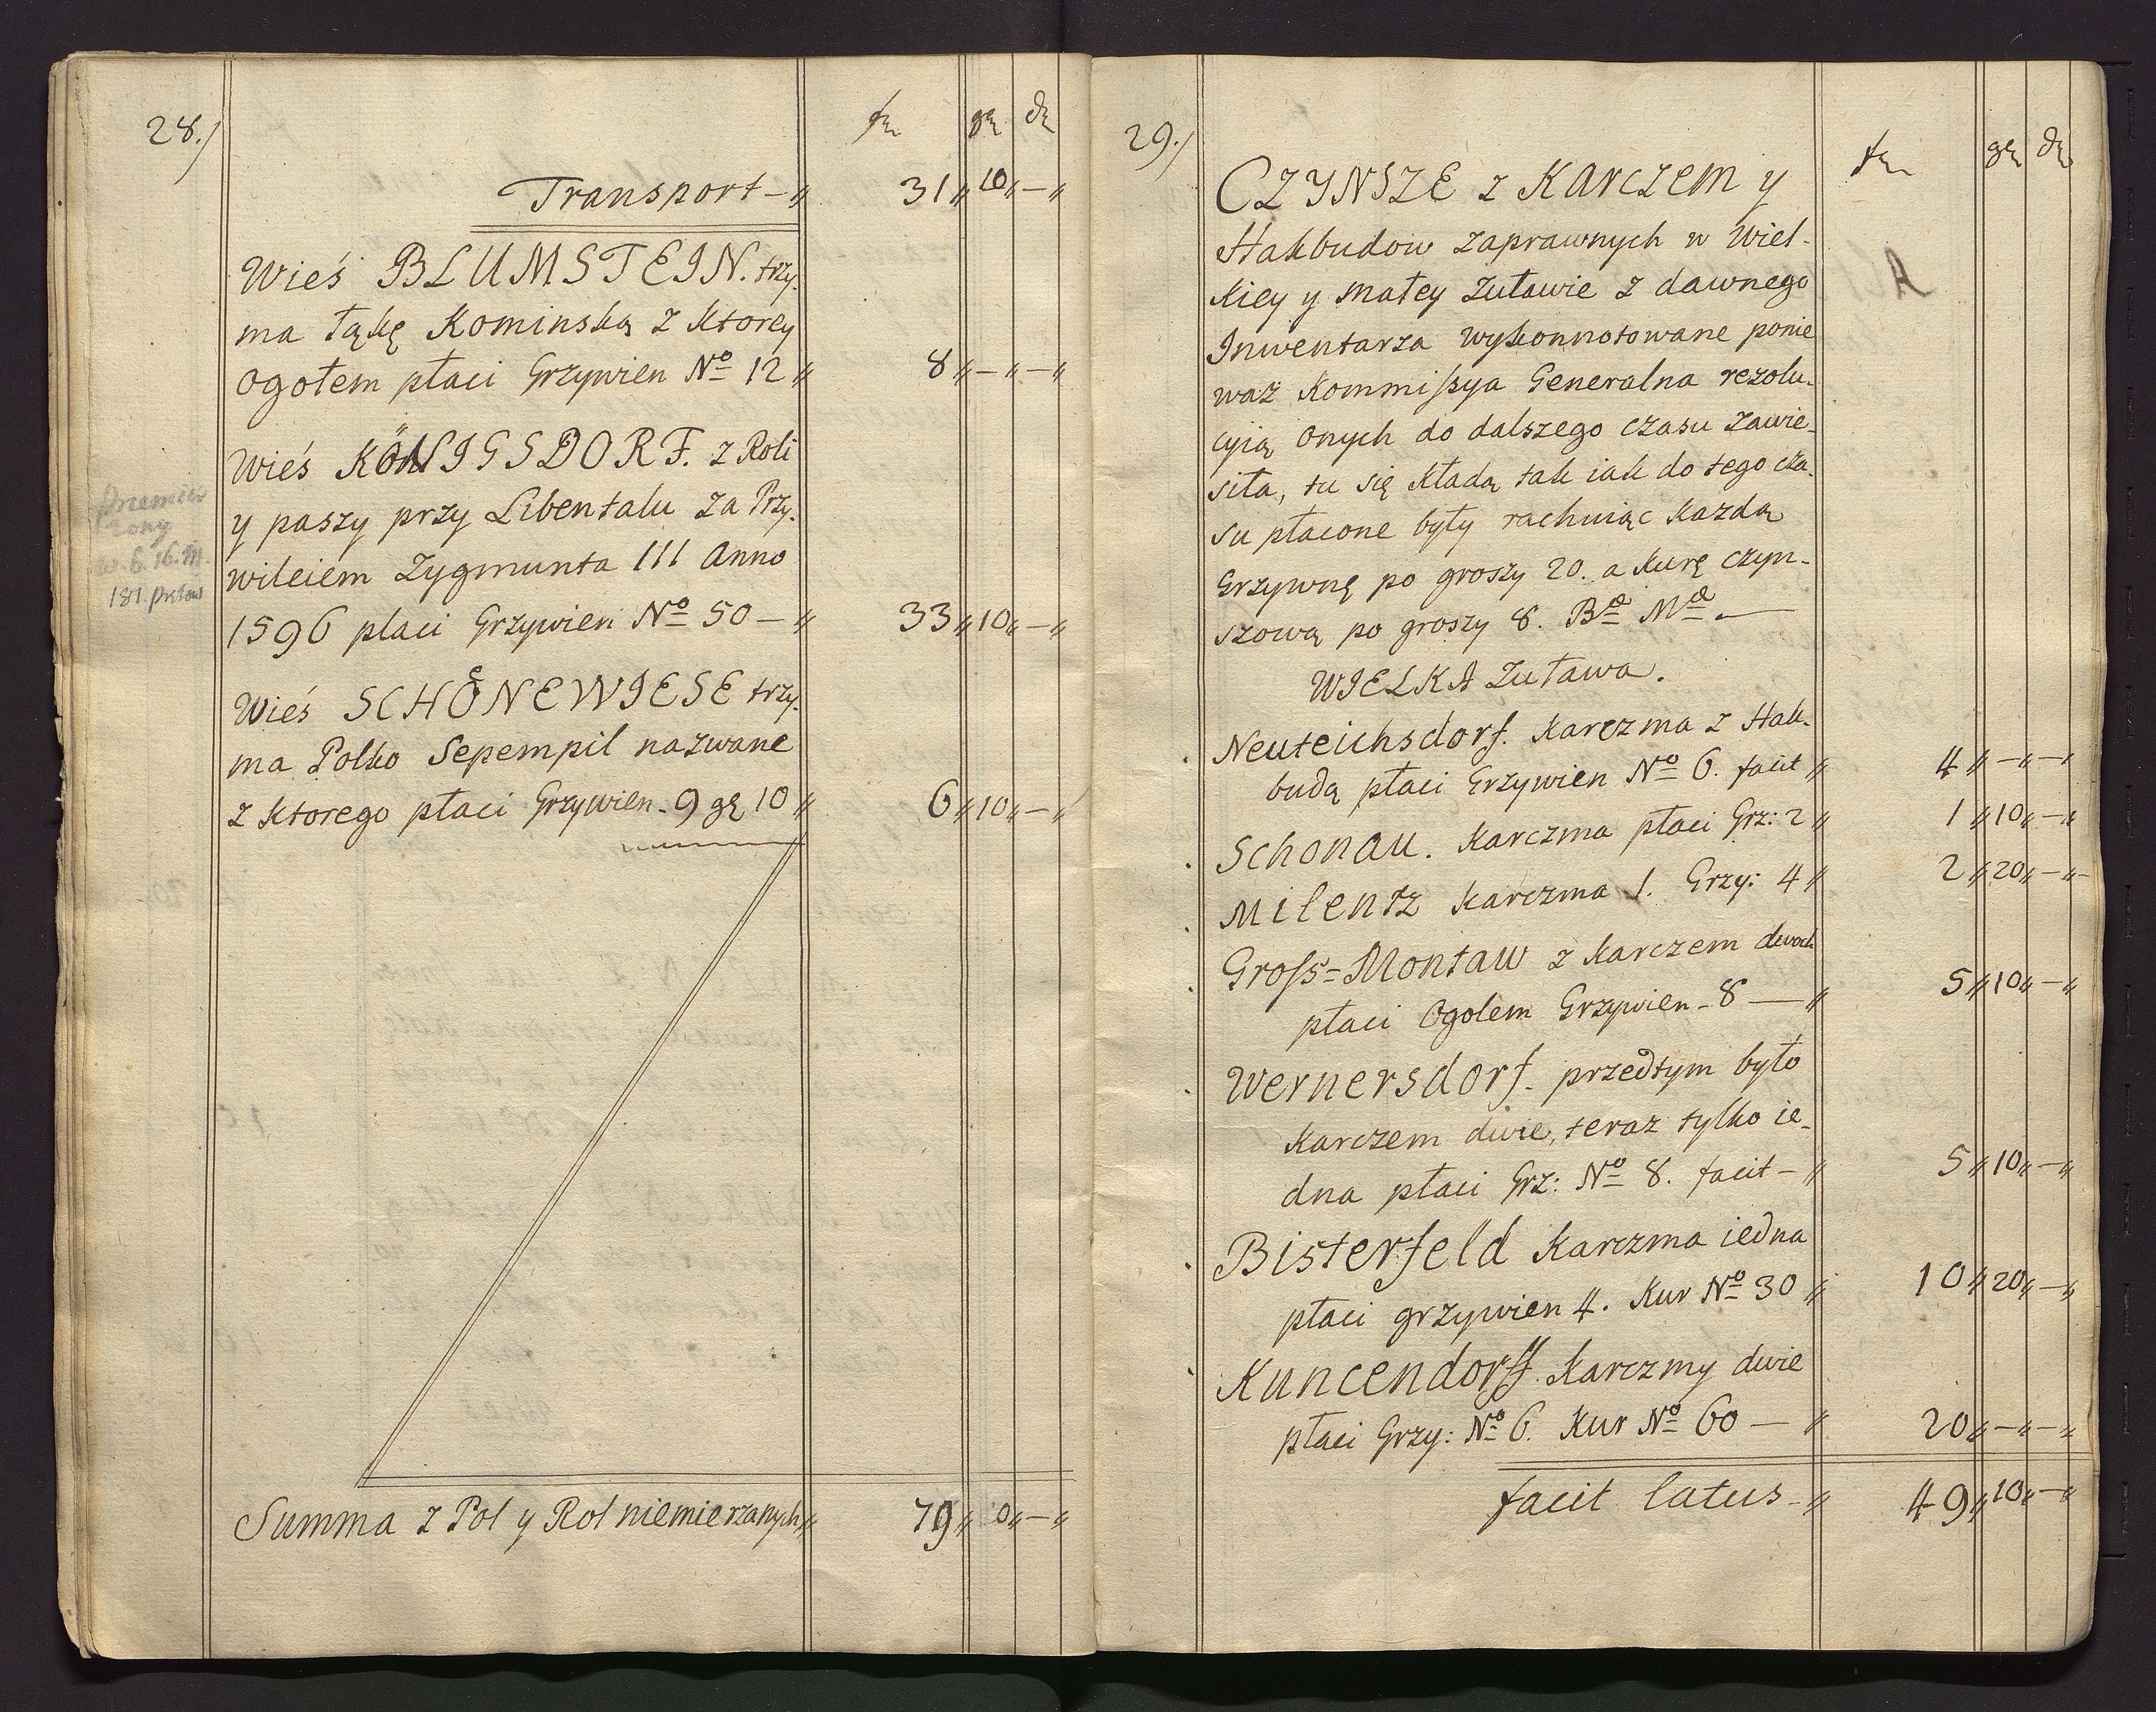 28.)
fr. gr. dr.
Transport –„ 31„ 10„ –„
Wieś BLUMSTEIN. trzy-
ma łąkę Kominską z ktorey
ogołem płaci Grzywien No 12„ 8„–„–„
Wieś KÖNIGSDORF. z Roli
y paszy przy Libentalu za Przy-
wileiem Zygmunta III Anno
1596 płaci Grzywien No 50 –„ 33„10„–„
Wieś SCHÖNEWIESE trzy-
ma Polko Sepempil nazwane
z ktorego płaci Grzywien 9 gę 10„ 6„10„–„
Summa z Pol y Rol niemierzanych„ 79„ 0„–„
181. prętow
29.)
fr. gr. dr.
CZYNSZE z Karczem y
Hakbudow zaprawnych w Wiel-
kiey y małey Zuławie z dawnego
Inwentarza wykonnotowane ponie
waż Kommissya Generalna rezolu-
cyią onych do dalszego czasu zawie-
siła, tu się kładą tak iak do tego cza-
su płacone były rachuiąc każdą
Grzywnę po groszy 20. a kurę czyn-
szową po groszy 8. Bæ Mæ –
WIELKA Zuława.
Neuteichsdorf. Karczma z Hak-
budą płaci Grzywien No 6. facit„ 4„–„–„
Schonau. Karczma płaci Grz: 2„ 1„10„–„
Milentz karczma 1. Grzy: 4„ 2„20„–„
Gross=Montaw z karczem dwoch
płaci Ogolem Grzywien – 8 –„ 5„10„–„
Wernersdorf. przedtym było
karczem dwie, teraz tylko ie-
dna płaci Grz: No 8. facit –„ 5„10„–„
Bisterfeld Karczma iedna
płaci grzywien 4. Kur No 30„ 10„20„–„
Kuncendorff. Karczmy dwie
płaci Grzy: No 6. Kur No 60 –„ 20„–„–„
facit latus –„ 49„10„–„